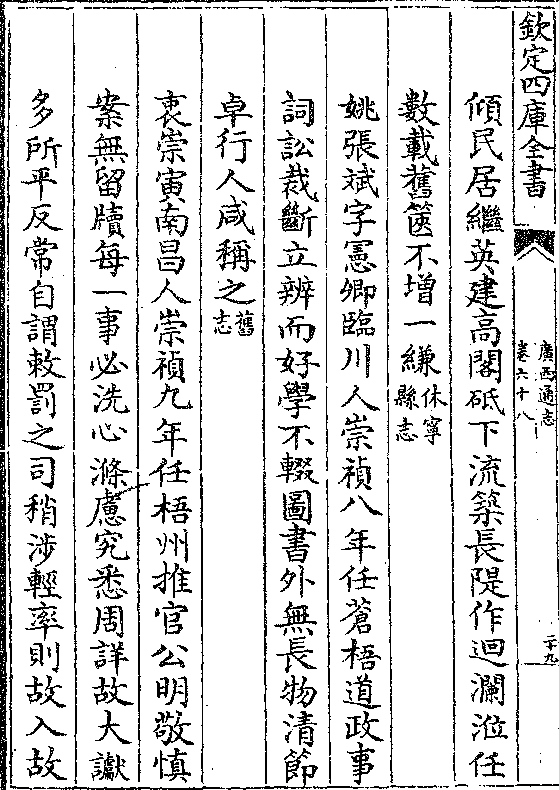 欽定四庫全書
廣西通志
卷六十八
二十九
傾民居繼英建高閣砥下流築長隄作迴瀾涖任
數載舊篋不增一縑休寧縣志
姚張斌字憲卿臨川人崇禎八年任蒼梧道政事
詞訟裁斷立辨而好學不輟圖書外無長物清節
卓行人咸稱之舊志
衷崇寅南昌人崇禎九年任梧州推官公明敬慎
案無留牘每一事必洗心滌慮究悉周詳故大讞
多所平反常自謂敕罰之司稍涉輕率則故入故